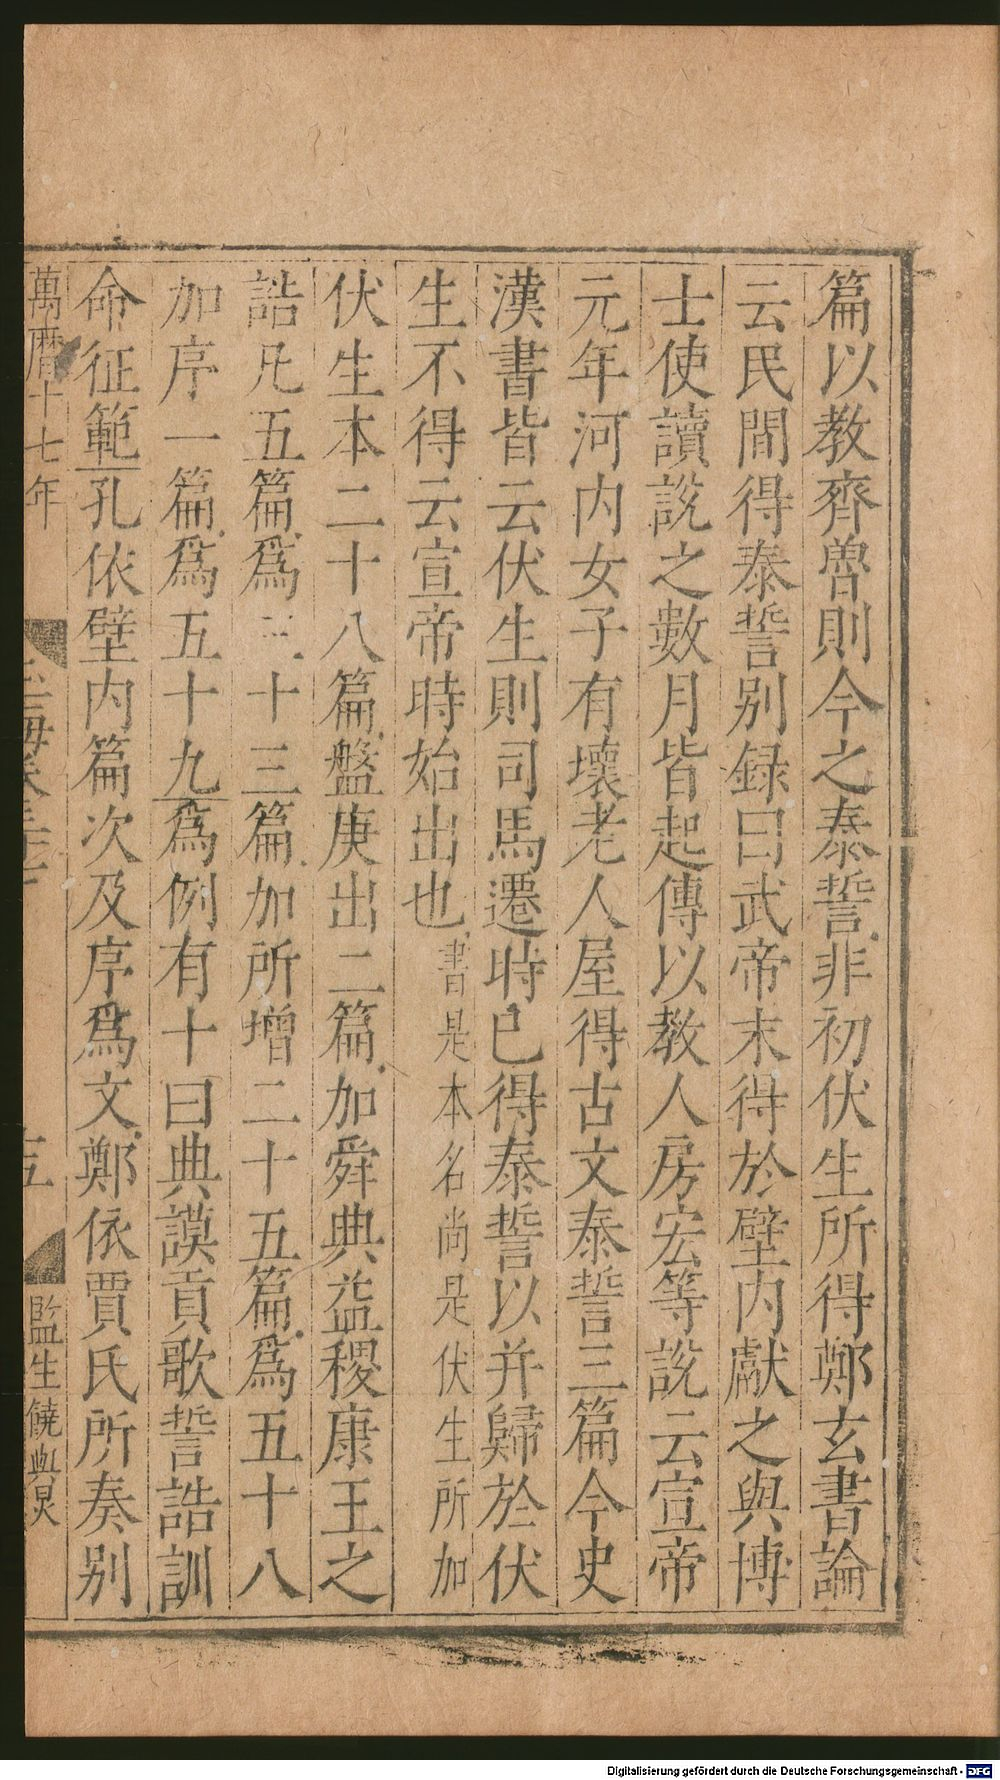 篇以教齊魯則今之泰誓非初伏生所得鄭玄書論
云民間得泰誓别録曰武帝末得於壁内獻之與博
士使讀說之數月皆起傳以教人房宏等說云宣帝
元年河内女子有壞老人屋得古文泰誓三篇今史
漢書皆云伏生則司馬遷時已得泰誓以并歸於伏
生不得云宣帝時始出也書是本名尚是伏生所加
伏生本二十八篇盤庚出二篇加舜典益稷康王之
誥凡五篇爲三十三篇加所增二十五篇爲五十八
加序一篇爲五十九爲例有十曰典謨貢歌誓誥訓
命征範孔依壁内篇次及序爲文鄭依賈氏所奏别
萬曆十七年
監生饒
Digitalisierung gefördert durch die Deutsche Forschungsgemeinschaft - DFG